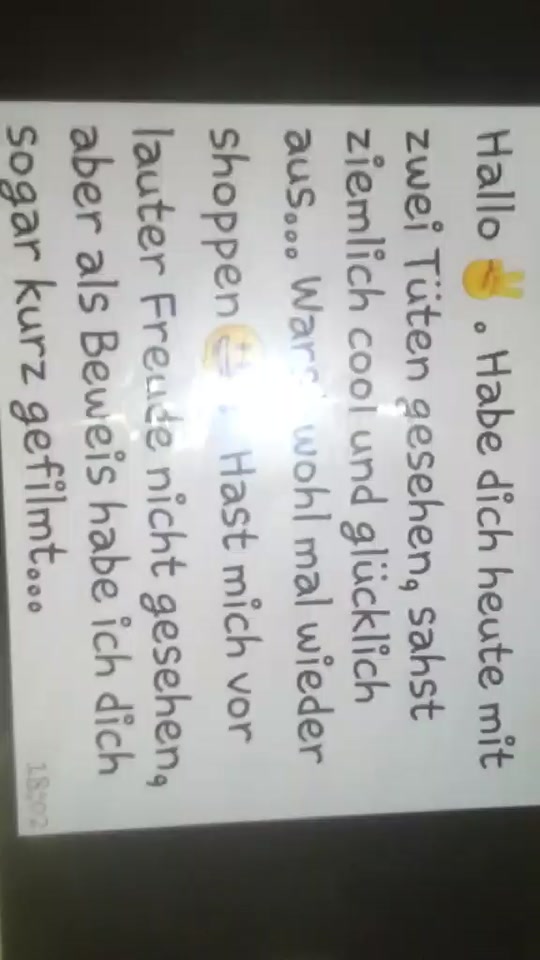 Hallo ✌. Habe dich heute mit
zwei Tüten gesehen, sahst
ziemlich cool und glücklich
aus... wohl mal wieder
shoppen 😁. Hast mich vor
lauter Freude nicht gesehen,
aber als Beweis habe ich dich
sogar kurz gefilmt...
18:02